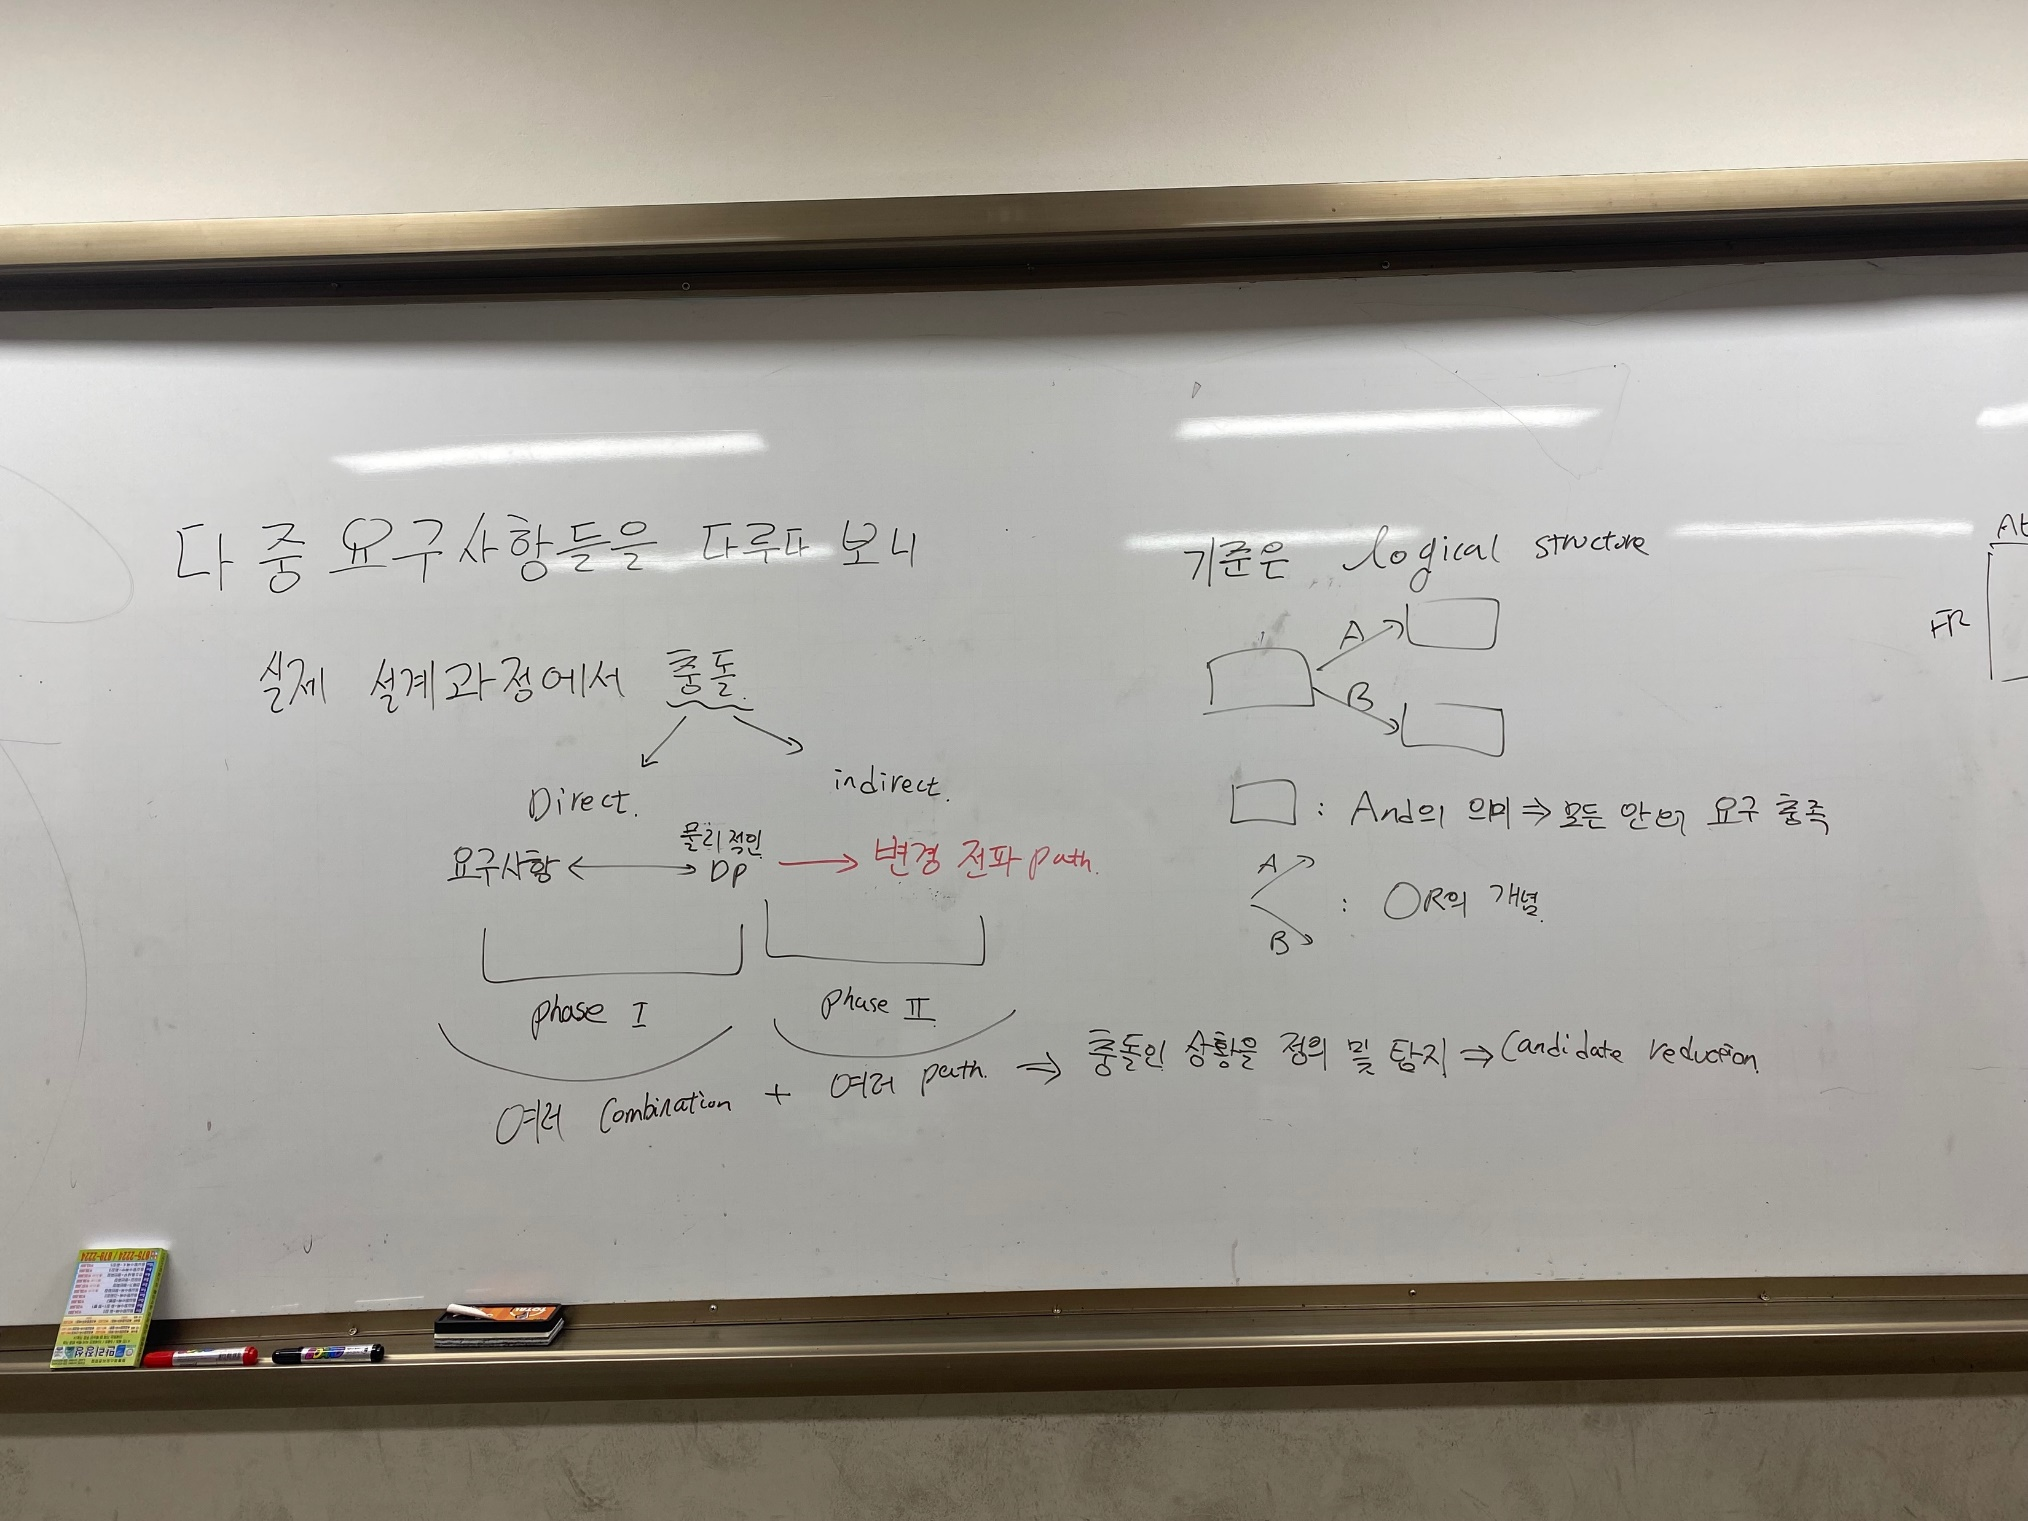 다중요구사항들을 다루다 보니
실제 설계과정에서 충돌.
Direct.
indirect.
물리적인
요구사항 ↔ DP → 변경 전파 path.
phase I
phase II
여러 Combination + 여러 path. ⇒ 충돌인 상황을 정의 및 탐지 ⇒ Candidate reduction
기준은 logical structure
A
B
: And의 의미 ⇒ 모든 안의 요구 충족
A
: OR의 개념.
B
FR
875-2224 / 878-2224